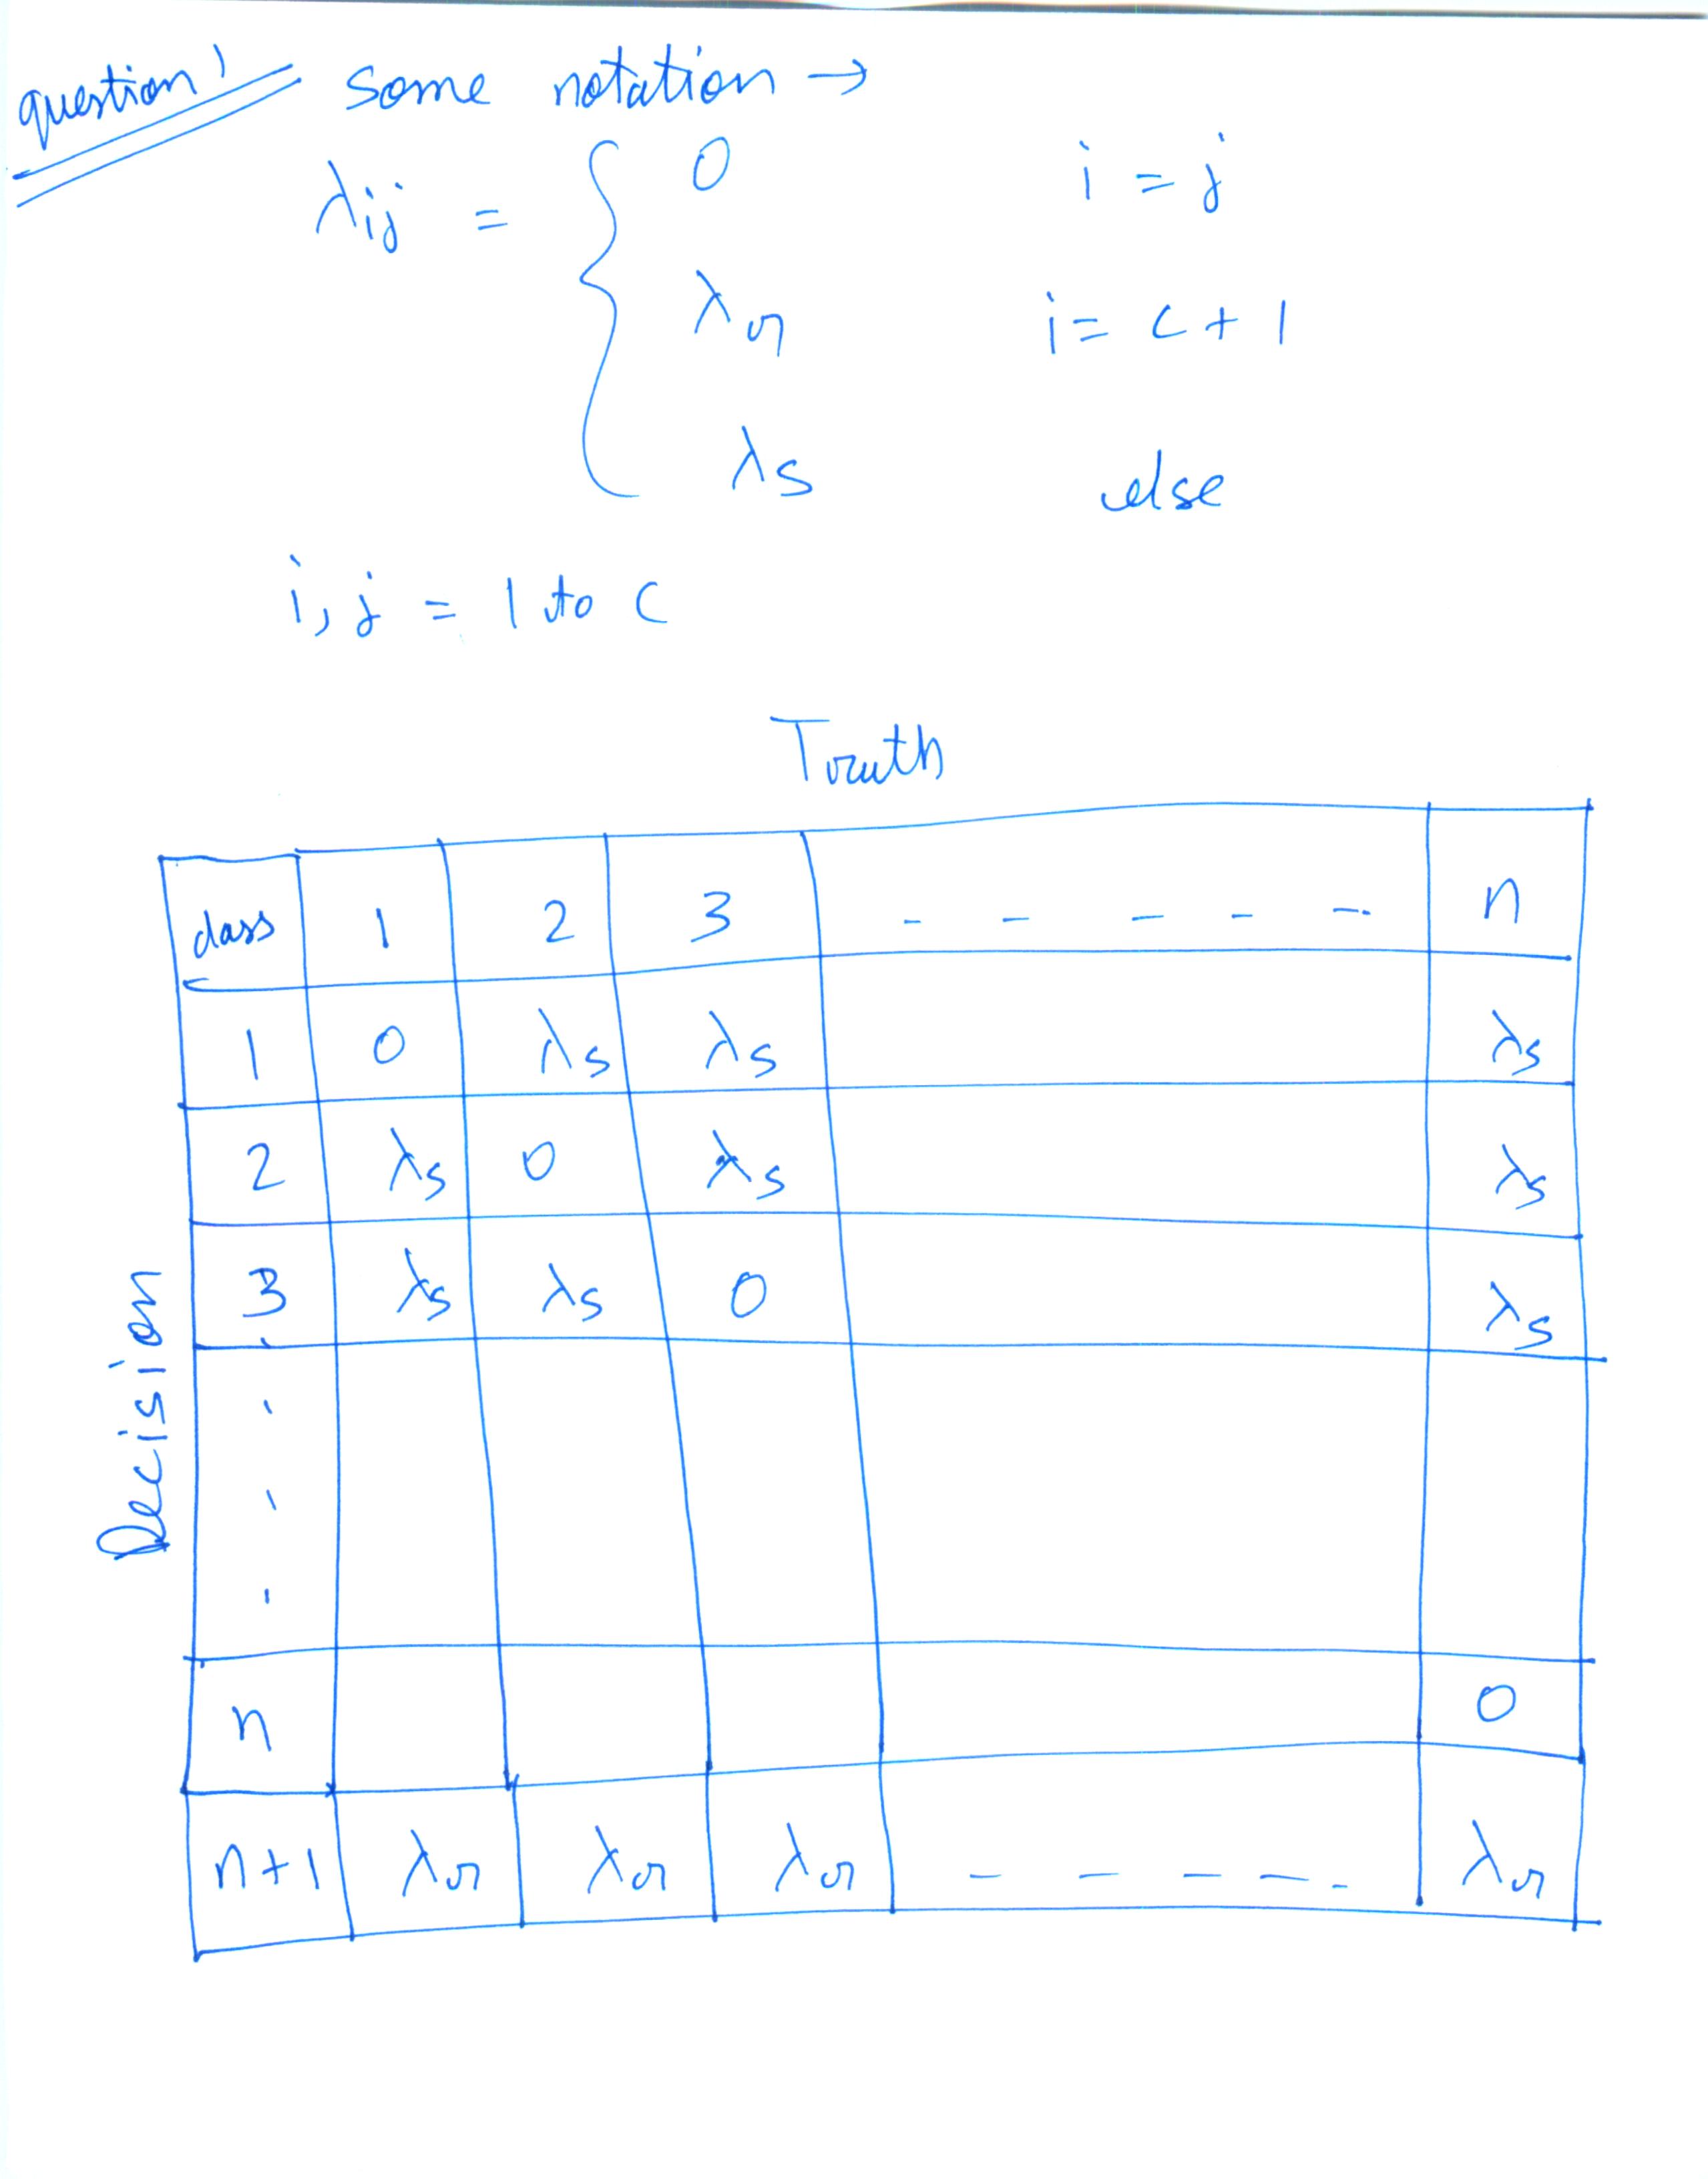 question 1 some notation →
λij = { 0 i = j
λr i = c + 1
λs else
i, j = 1 to c
Truth
class 1 2 3 - - - - - n
1 0 λs λs λs
2 λs 0 λs λs
3 λs λs 0 λs
Decision
n 0
n+1 λr λr λr - - - - - λr